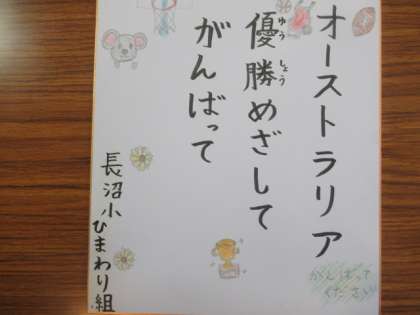 オーストラリア
優勝めざして
ゆうしょう
がんばって
長沼小ひまわり組
がんばって
ください